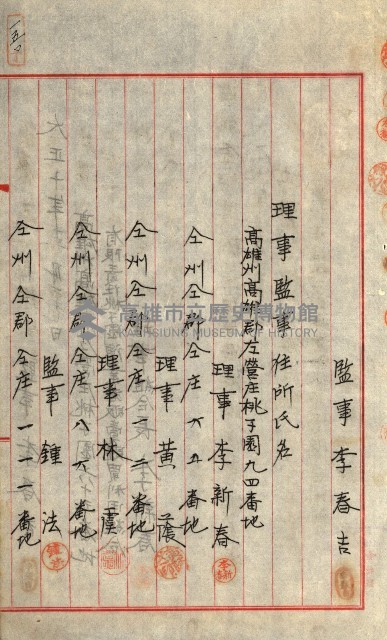 監事 李春吉
理事監事住所氏名
高雄州高雄郡左營庄桃子園九四番地
理事 李新春
仝州仝郡仝庄六五番地
理事 黃
仝州仝郡仝庄一一三番地
理事 林虞
仝州仝郡仝庄八六番地
監事 鍾法
仝州仝郡仝庄一一一番地
高雄市立歷史博物館
KAOHSIUNG MUSEUM OF HISTORY